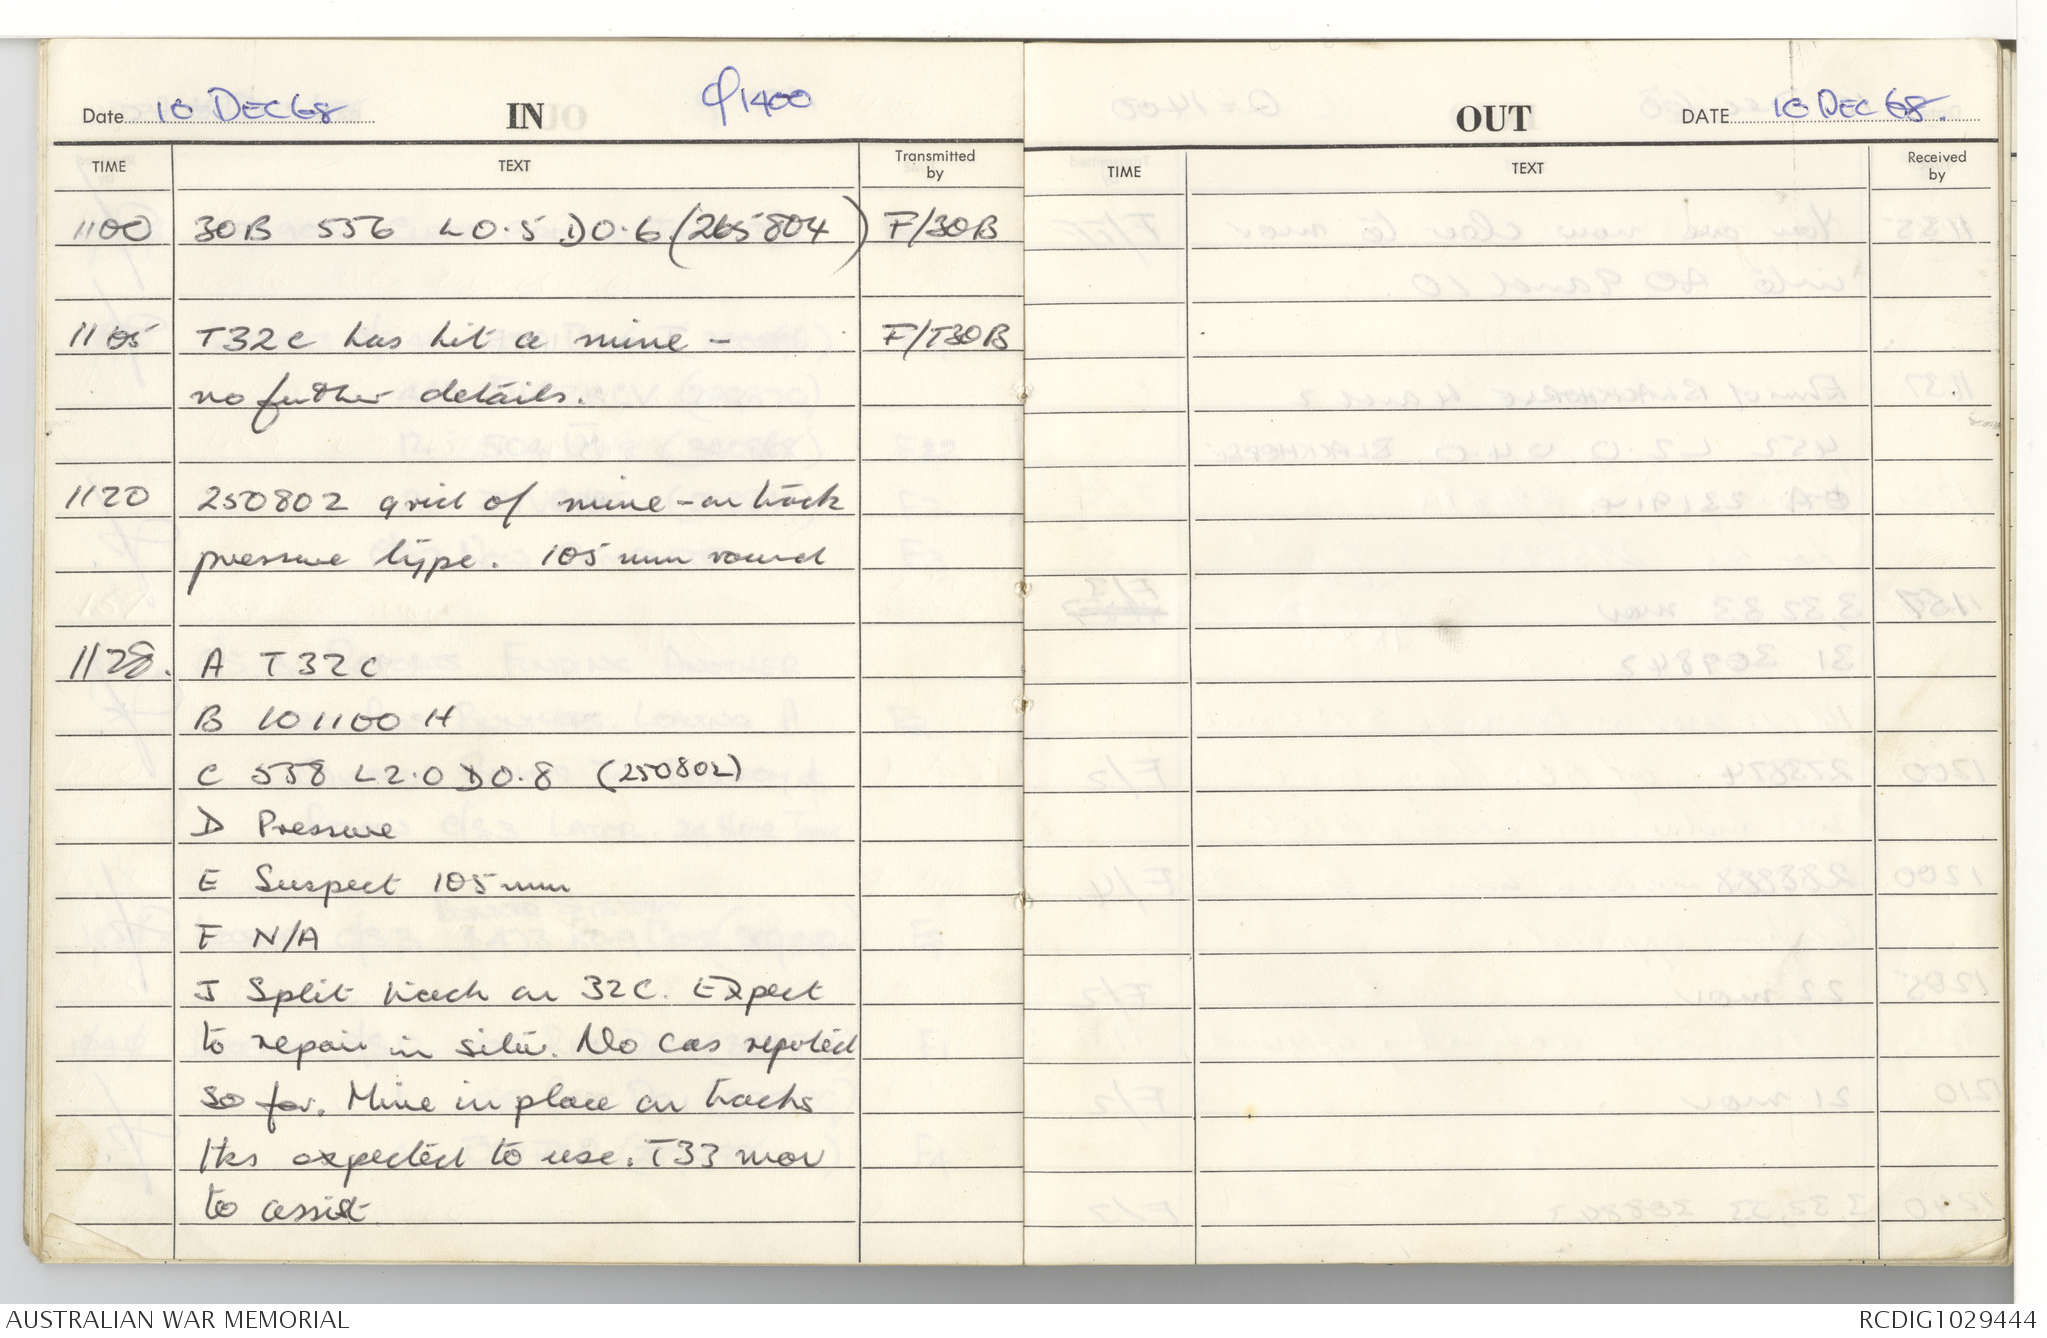 Date 10 DEC 68 IN 1400
TIME TEXT Transmitted by
1100 30B 556 L0.5 D0.6 (265804) F/30B
1105 T32C has hit a mine - F/T30B
no further details.
1120 250802 grid of mine - on track
pressure type. 105 mm round
1128. A T32C
B 101100 H
C 558 L2.0 D0.8 (250802)
D Pressure
E Suspect 105mm
F N/A
J Split track on 32C. Expect
to repair in situ. No Cas reported
so far. Mine in place on tracks
Tks expected to use. T33 mov
to assist
OUT DATE 10 DEC 68.
TIME TEXT Received by
AUSTRALIAN WAR MEMORIAL RCDIG1029444